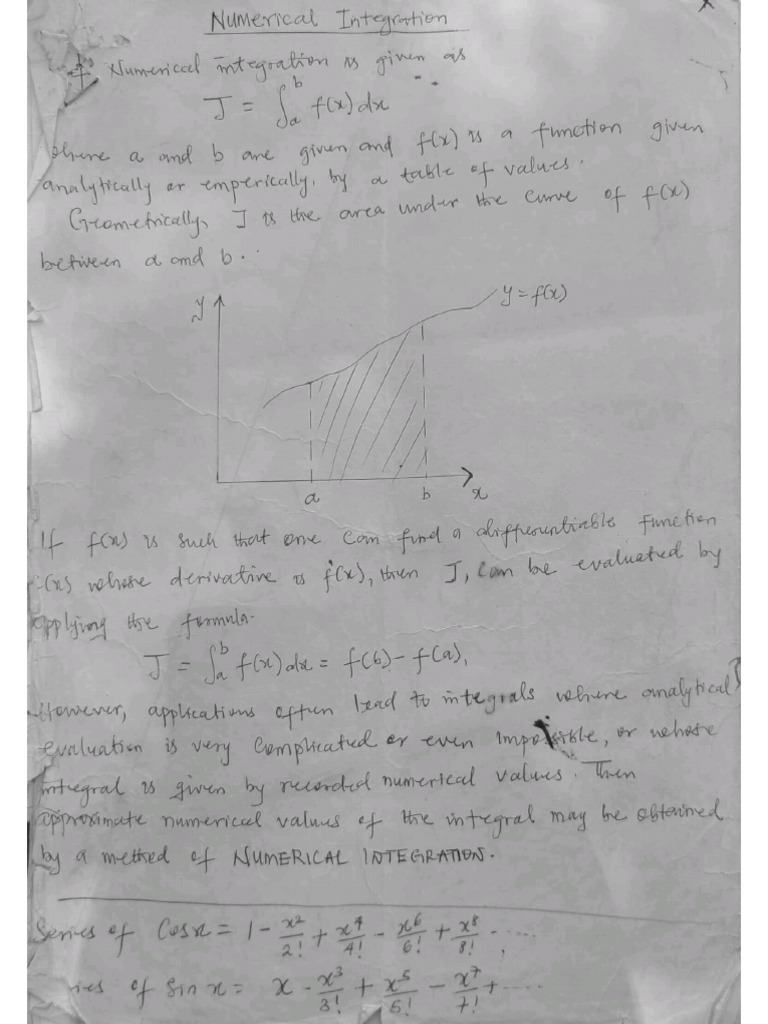 Numerical Integration
Numerical integration is given as
J = ∫ₐᵇ f(x)dx
where a and b are given and f(x) is a function given
analytically or emperically, by a table of values.
Geometrically, J is the area under the curve of f(x)
between a and b.
y
y = f(x)
a b x
If f(x) is such that one can find a differentiable function
(x) whose derivative is f(x), then J, can be evaluated by
applying the formula.
J = ∫ₐᵇ f(x)dx = f(b) - f(a),
However, applications often lead to integrals where analytical
evaluation is very complicated or even impossible, or whose
integral is given by recorded numerical values. Then
approximate numerical values of the integral may be obtained
by a method of NUMERICAL INTEGRATION.
Series of Cosx = 1 - x²/2! + x⁴/4! - x⁶/6! + x⁸/8! - ....,
ies of Sin x = x - x³/3! + x⁵/5! - x⁷/7! + ....